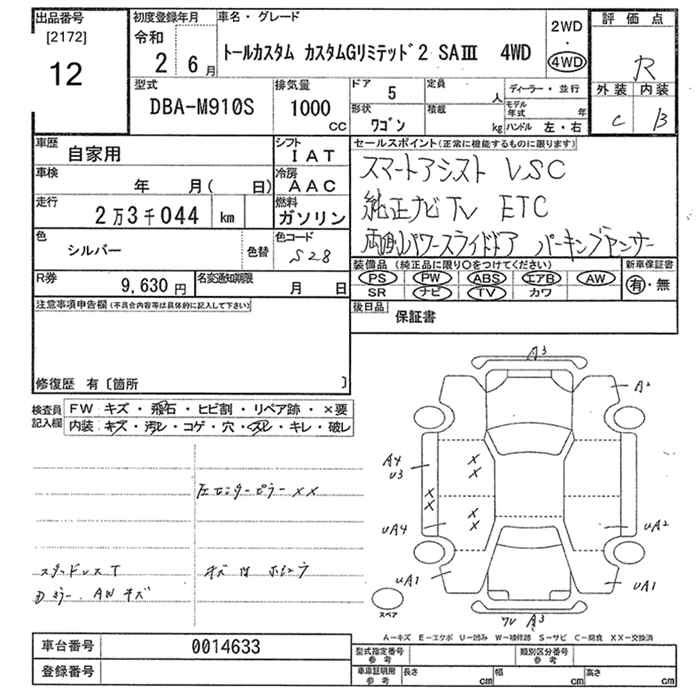 出品番号
[2172]
12
初度登録年月
令和
2 6月
車名・グレード
トールカスタム カスタムGリミテッド2 SAⅢ 4WD
2WD
・
4WD
評価点
R
外装 内装
C B
型式
DBA-M910S
排気量
1000
CC
ドア 5
形状 ワゴン
定員 人
積載 kg
ディーラー・並行
モデル年式 年
ハンドル 左・右
車歴 自家用
シフト IAT
車検 年 月( 日)
冷房 AAC
走行 2万3千044 km
燃料 ガソリン
色 シルバー 色替
色コード S28
R券 9,630円
名変通知期限 月 日
セールスポイント(正常に機能するものに限ります)
スマートアシスト VSC
純正ナビTV ETC
両側パワースライドドア パーキングセンサー
装備品(純正品に限り○をつけてください)
PS PW ABS エアB AW
SR ナビ TV カワ
新車保証書
有・無
後日品 保証書
注意事項申告欄(不具合内容等は具体的に記入して下さい)
修復歴 有〔箇所 〕
検査員記入欄
FW キズ・飛石・ヒビ割・リペア跡・×要
内装 キズ・汚レ・コゲ・穴・スレ・キレ・破レ
左センターピラー XX
スタッドレスT
AW キズ
A3
A2
A4
U3
X
X
X
X
X
X
UA4
UA2
UA1
UA1
A3
スペア
A－キズ E－エクボ U－凹み W－補修跡 S－サビ C－腐食 XX－交換済
車台番号 0014633
登録番号
型式指定番号 参考
類別区分番号 参考
車庫証明用 参考
長さ cm
幅 cm
高さ cm